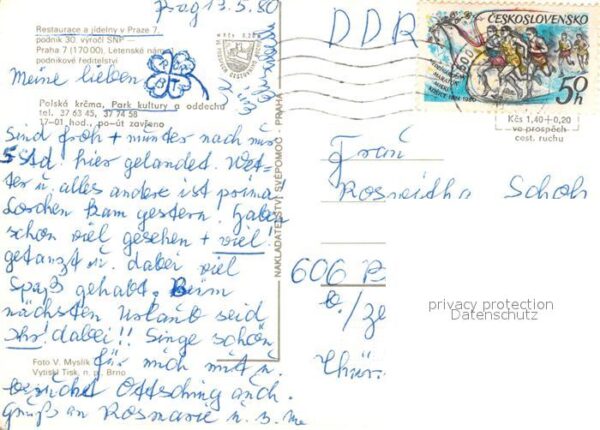 Prag 13.5.80
Restaurace a jídelny v Praze 7,
podnik 30. výročí SNP –
Praha 7 (170 00), Letenské námě
podnikové ředitelství
Meine lieben
Polská krčma, Park kultury a oddechu
tel. 37 63 45, 37 74 58
17–01 hod., po–út zavřeno
Sind froh + munter nach nur
5 Std. hier gelandet. Wet-
ter u. alles andere ist prima!
Lorchen kam gestern. Haben
schon viel gesehen + viel!
getanzt u. dabei viel
Spaß gehabt. Beim
nächsten Urlaub seid
Ihr! dabei!! Singe schön
für mich mit u.
Foto V. Myslík
Vytiskl Tisk, n. p., Brno
auch.
Gruß an Rosmarie u. s. w.
NAKLADATELSTVÍ SVÉPOMOC - PRAHA
DDR
ČESKOSLOVENSKO
50h
Kčs 1,40+0,20
ve prospěch
cest. ruchu
Frau
Roswitha Schoh
606
privacy protection
Datenschutz
Thür.